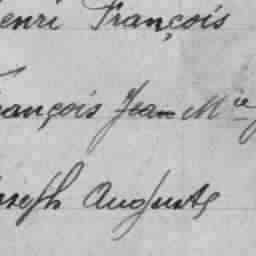 enri François
rançois Jean Mie
oseph Auguste